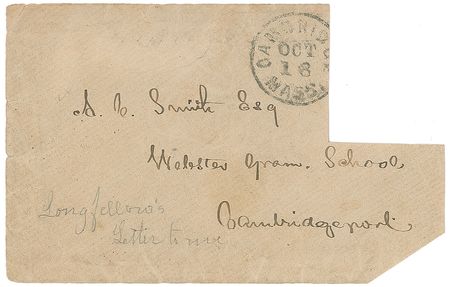 CAMBRIDGE
OCT
16
MASS.
A. C. Smith Esq
Webster Gram. School
Cambridgeport
Longfellow's
Letter to me